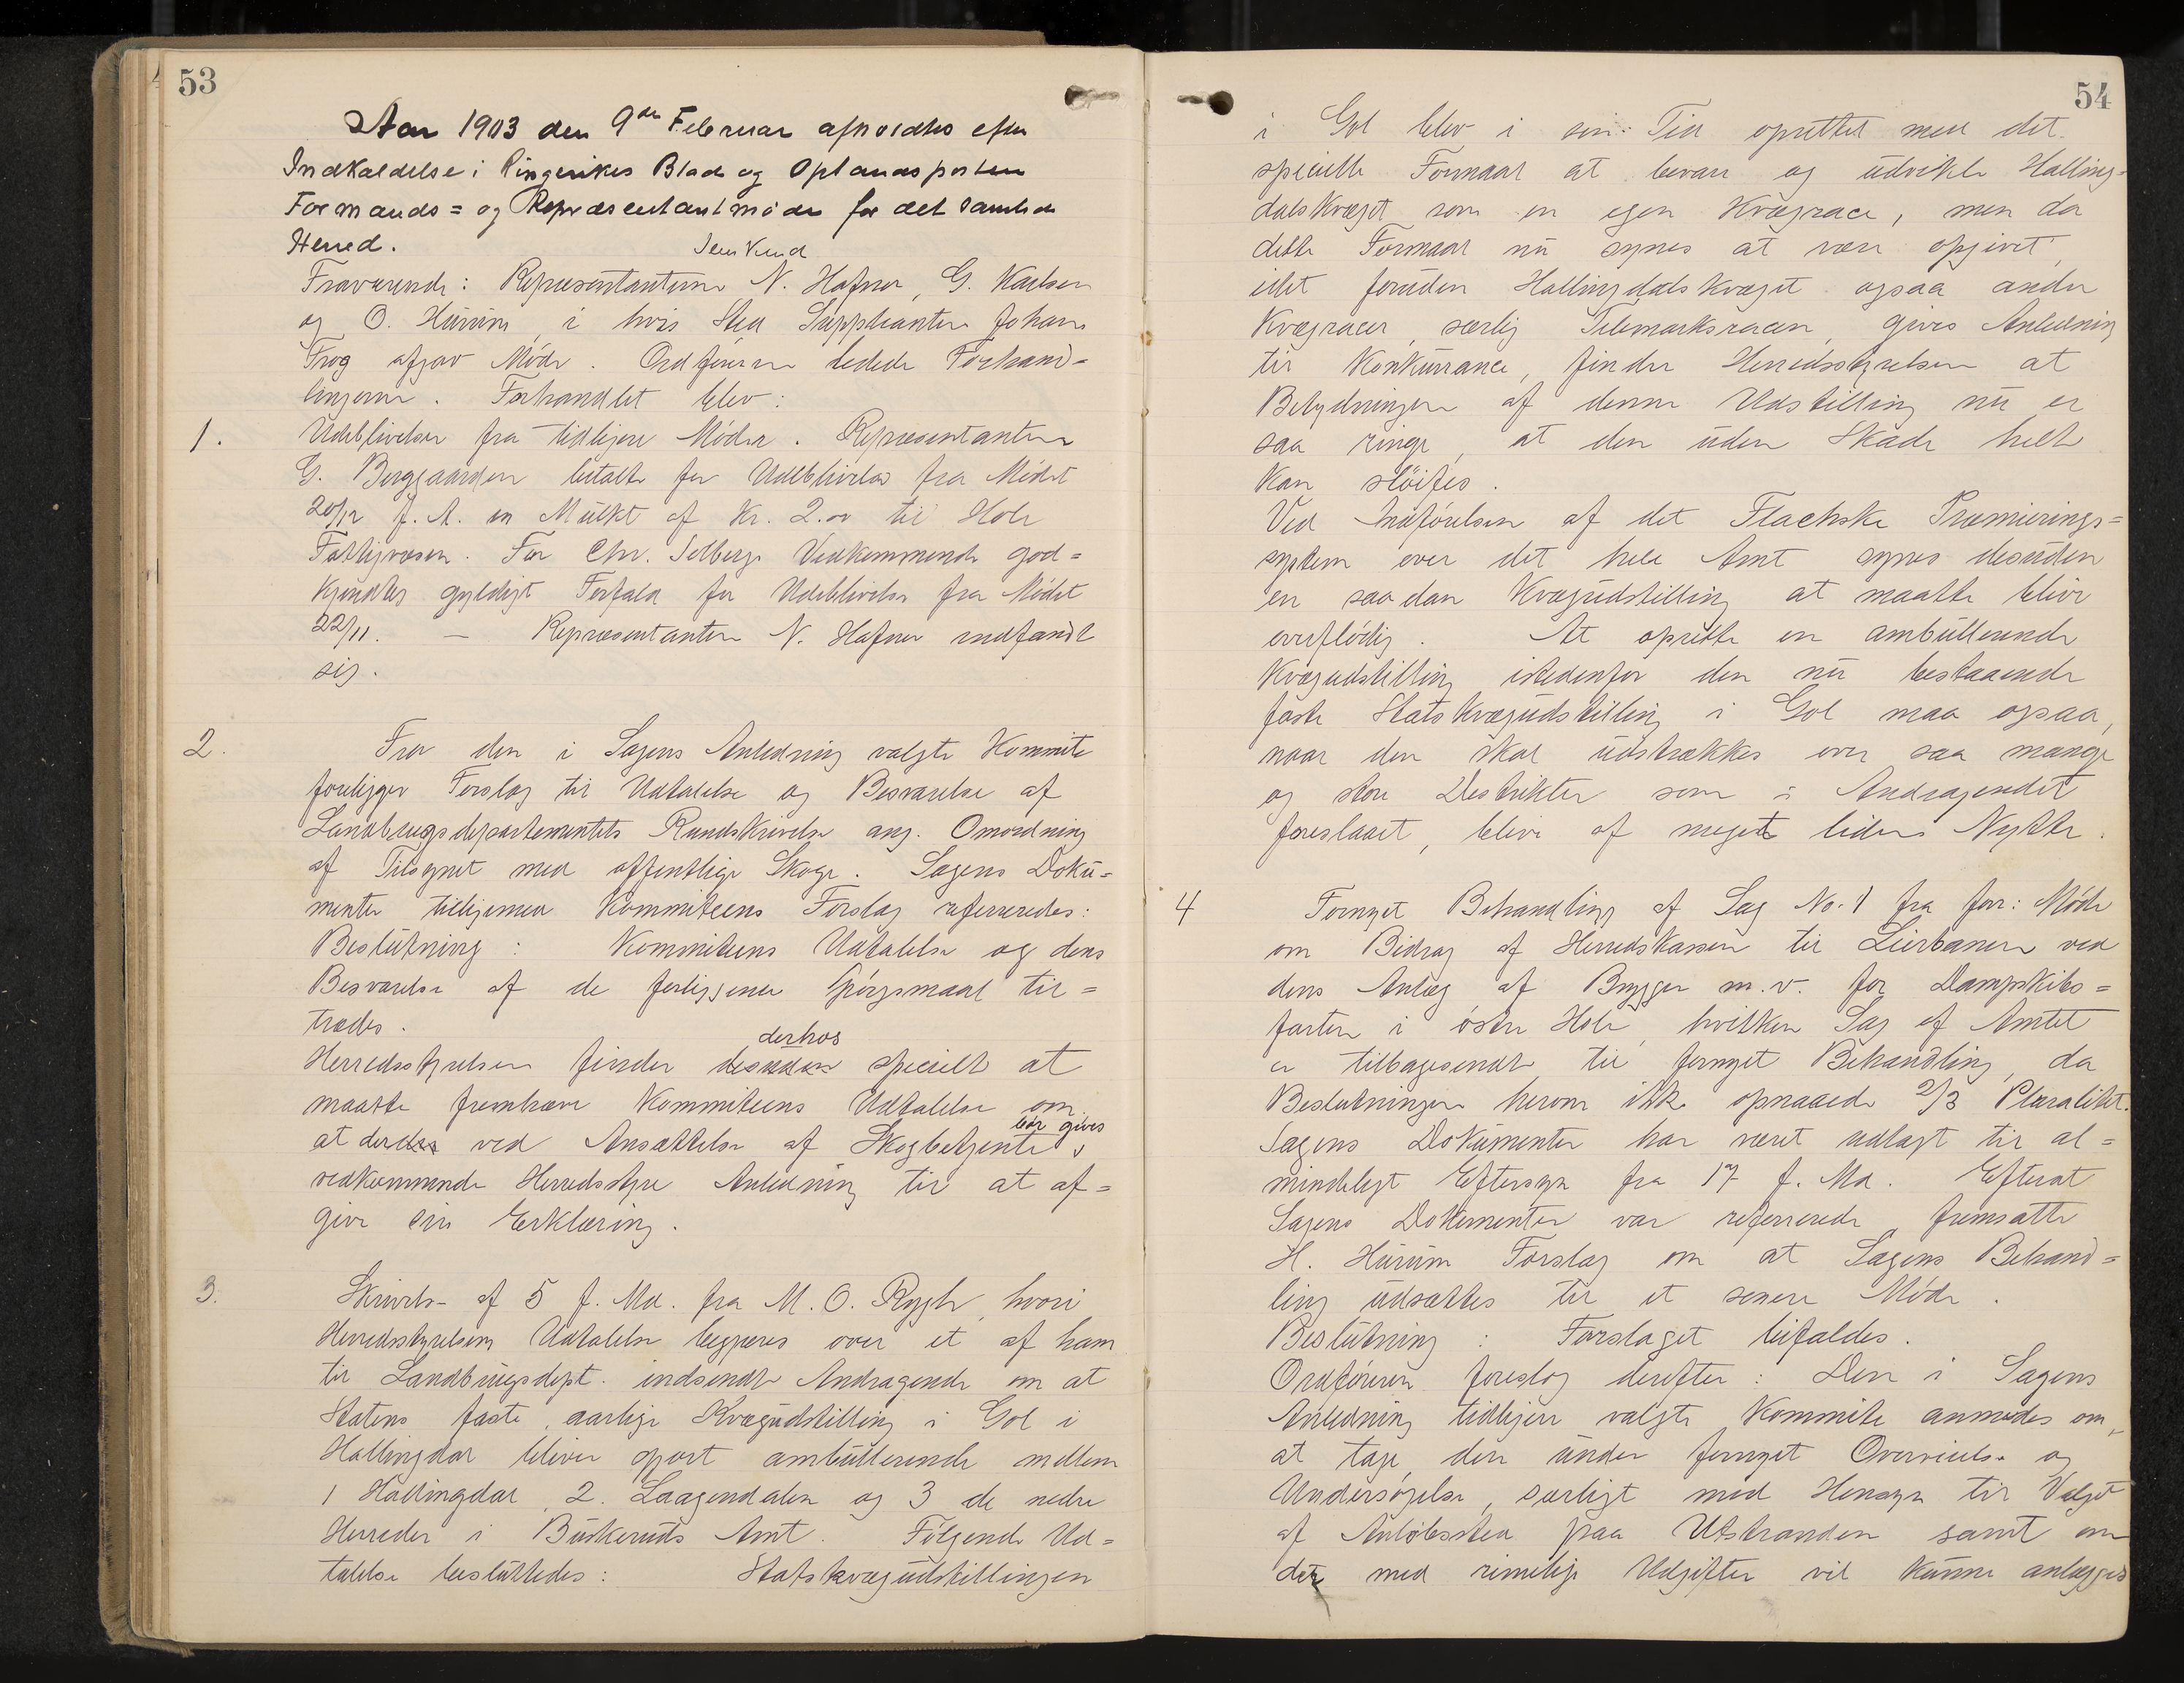 53
Aar 1903 den 9de Februar afholdtes efter
Indkaldelse i Ringerikes Blad og Oplandsposten
Formands= og Repræsentantmøde for det samlede
Herred.
Fraværende: Repræsentanterne N. Hafnor, G. Karlsen
og O. Hurum, i hvis Sted Suppleanten Johans
Frog afgav Møde. Ordføreren ledede Forhand=
lingerne. Forhandlet blev:
1. Udeblivelser fra tidligere Møder. Repræsentanten
G. Berggaarden betalte for Udeblivelse fra Mødet
20/12 f. A. en Mulkt af Kr. 2.00 til Hole
Fattigvæsen. For Chr. Solbergs Vedkommende god=
kjendtes gyldigt Forfald for Udeblivelse fra Mødet
22/11. — Repræsentanten N. Hafnor indfandt
sig.
2. Fra den i Sagens Anledning valgte Kommite
foreligger Forslag til Udtalelse og Besvarelse af
Landbrugsdepartementets Rundskrivelse ang. Omordning
af Tilsynet med offentlige Skoge. Sagens Doku=
menter tilligemed Kommiteens Forslag refereredes:
Beslutning: Kommiteens Udtalelse og dens
Besvarelse af de foreliggende Spørgsmaal til=
trædes.
derhos
Herredsstyrelsen finder desuden specielt at
maatte fremhæve Kommiteens Udtalelse om
bør gives
at der ved Ansættelse af Skogbetjente
vedkommende Herredsstyre Anledning til at af=
give sin Erklæring.
3. Skrivelse af 5 f. Md. fra M. O. Rygh, hvori
Herredsstyrelsens Udtalelse begjæres over et af ham
til Landbrugsdept. indsendt Andragende om at
Statens faste, aarlige Kvægudstilling i Gol i
Hallingdal bliver gjort ambullerende mellem
1 Hallingdal, 2. Laagendalen og 3 de nedre
Herreder i Buskeruds Amt. Følgende Ud=
talelse besluttedes: Statskvægudstillingen
54
i Gol blev i sin Tid oprettet med det
specielle Formaal at bevare og udvikle Halling=
dalskvæget som en egen Kvægrace, men da
dette Formaal nu synes at være opgivet,
idet foruden Hallingdalskvæget ogsaa andre
Kvægracer, særlig Telemarksracen, gives Anledning
til Konkurrance, finder Herredsstyrelsen at
Betydningen af denne Udstilling nu er
saa ringe, at den uden Skade helt
kan sløifes.
Ved Indførelsen af det Flachske Præmierings=
system over det hele Amt synes desuden
en saadan Kvægudstilling at maatte blive
overflødig. At oprette en ambullerende
Kvægudstilling istedenfor den nu bestaaende
faste Statskvægudstilling i Gol maa ogsaa,
naar den skal udstrækkes over saa mange
og store Distrikter som i Andragendet
foreslaaet, blive af meget liden Nytte.
4 Fornyet Behandling af Sag No. 1 fra forr: Møde
om Bidrag af Herredskassen til Lierbanen ved
dens Anlæg af Brygger m.v. for Dampskibs=
farten i østre Hole, hvilken Sag af Amtet
er tilbagesendt til fornyet Behandling, da
Beslutningen herom ikke opnaaede 2/3 Pluralitet.
Sagens Dokumenter har været udlagt til al=
mindeligt Eftersyn fra 17 f. Md. Efterat
Sagens Dokumenter var refererede, fremsatte
H. Hurum Forslag om at Sagens Behand=
ling udsættes til et senere Møde.
Beslutning: Forslaget bifaldes.
Ordføreren foreslog derefter: Den i Sagens
Anledning tidligere valgte Kommite anmodes om,
at tage den under fornyet Overveielse og
Undersøgelse, særligt med Hensyn til Valget
af Anløbssted paa Utstranden samt om
der med rimelige Udgifter vil kunne anlægges